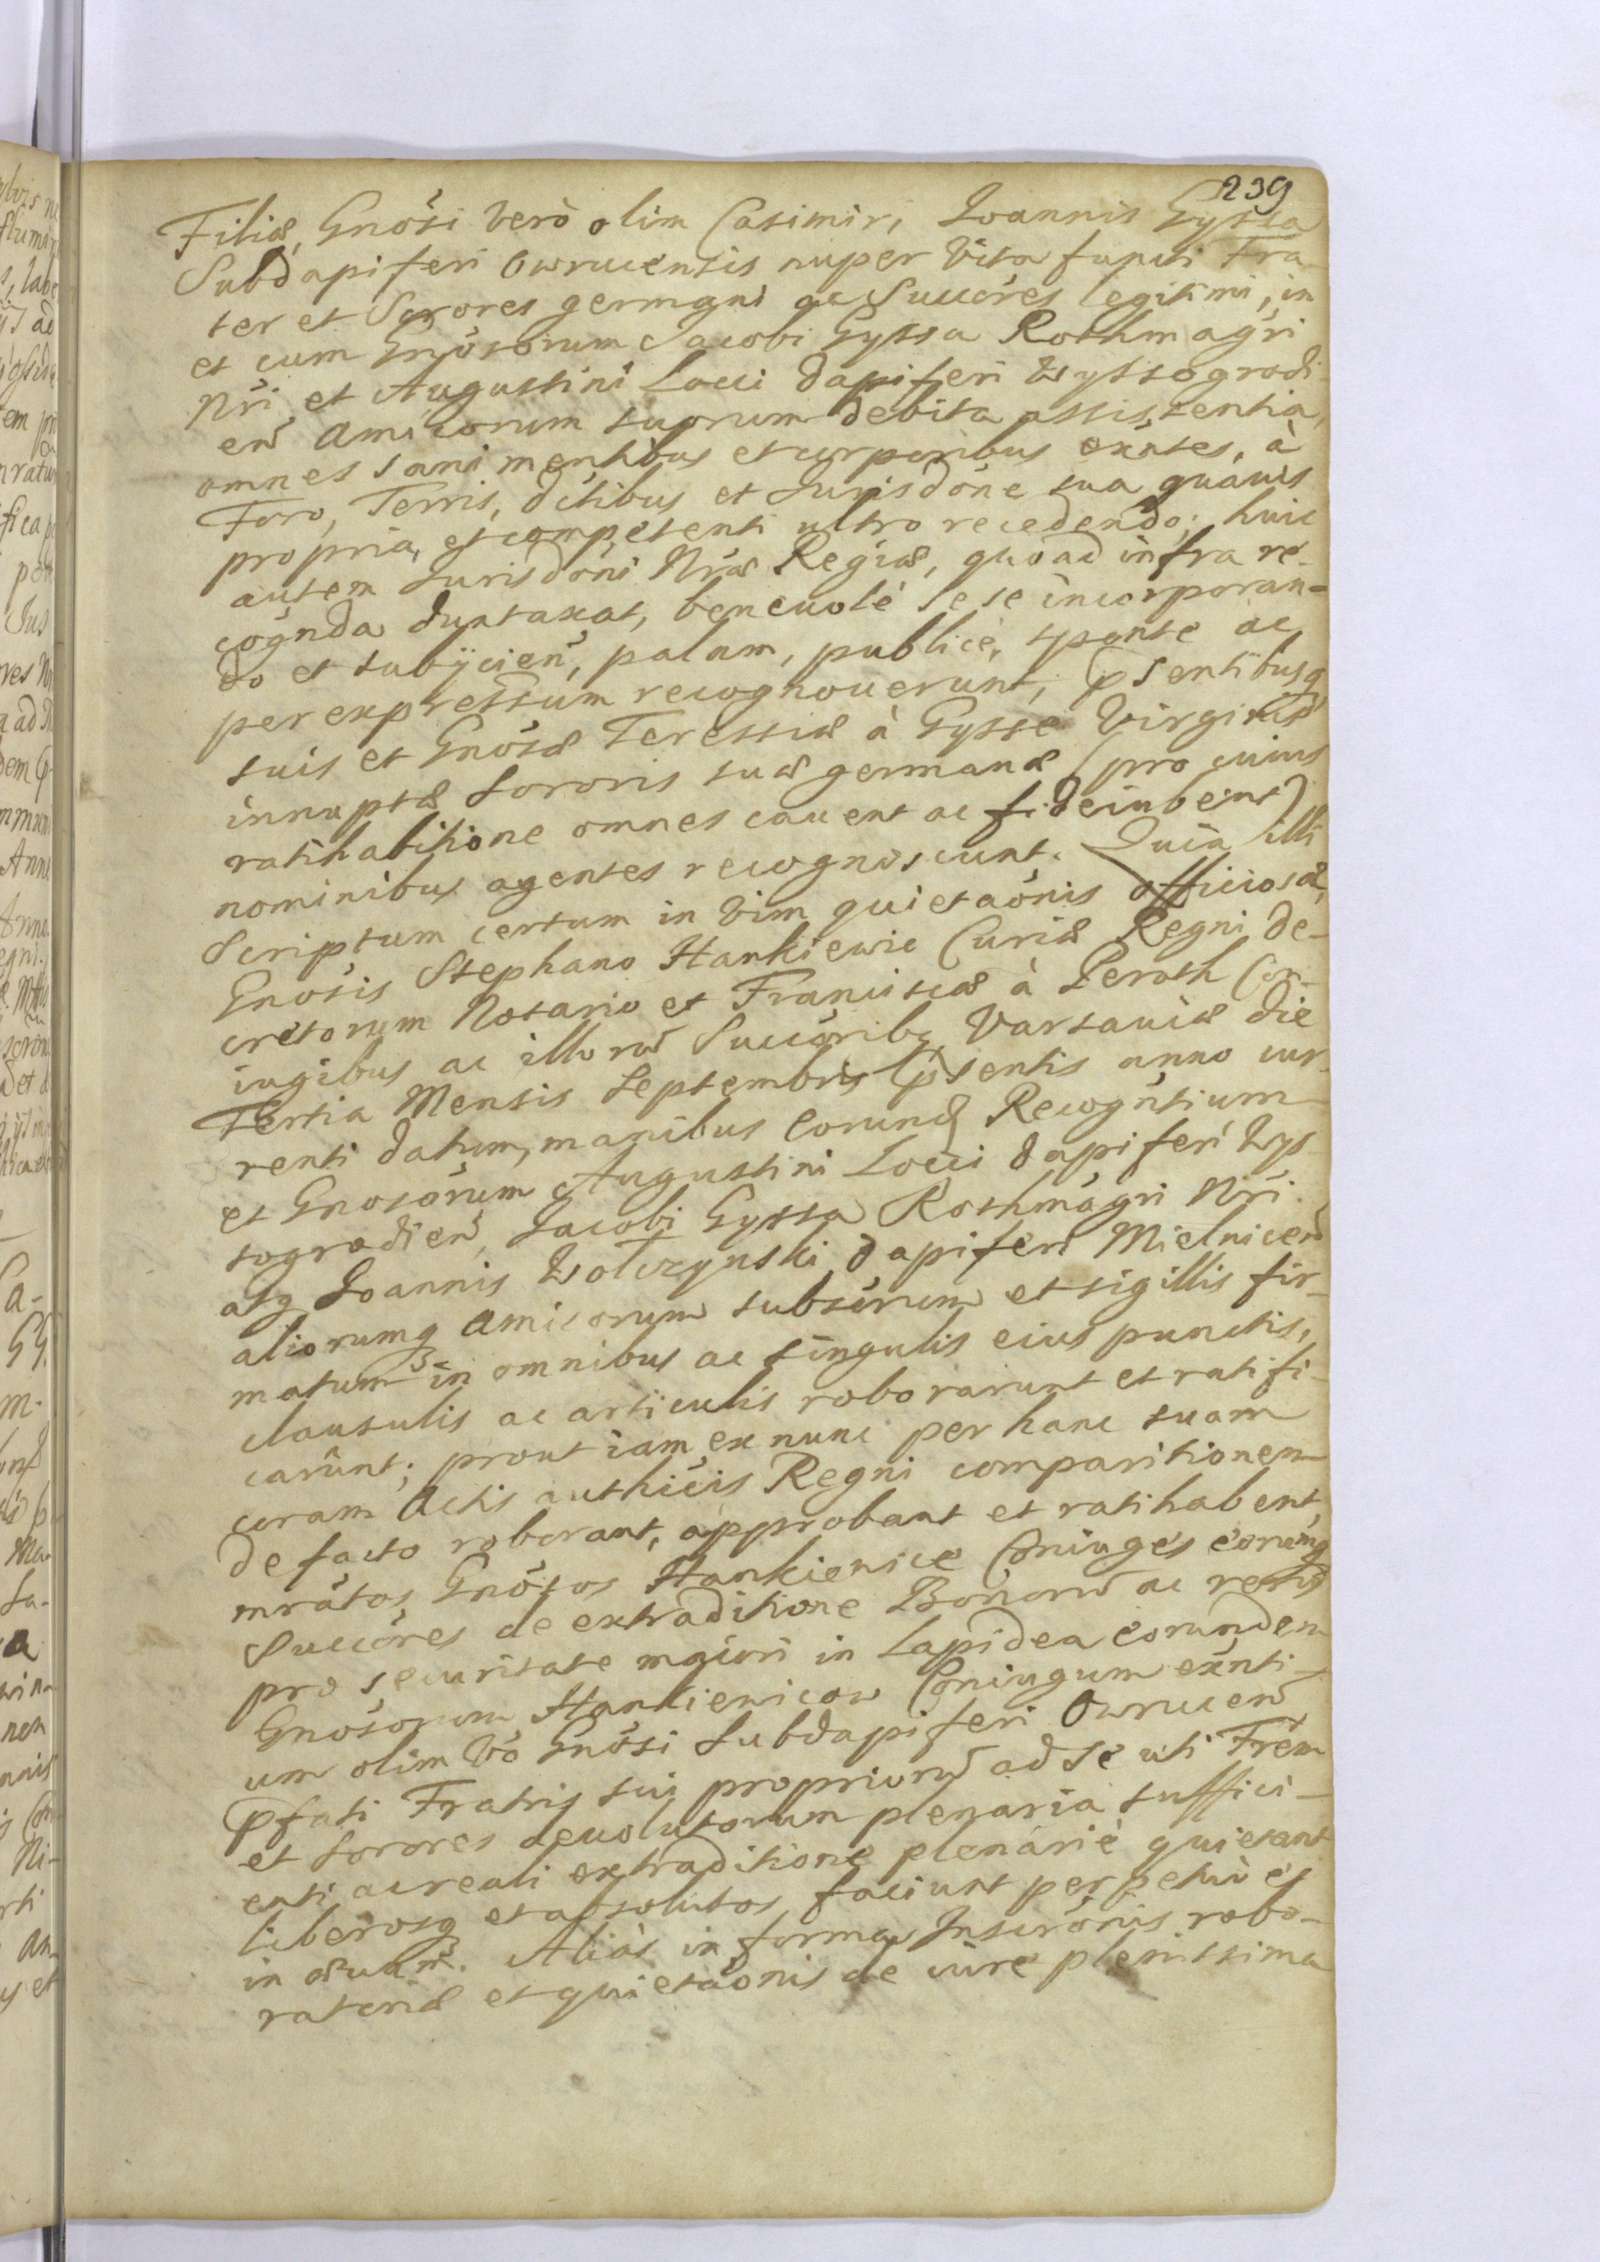 239
Filiæ, Gnosi verò olim Casimiri Ioannis Gyssa
Subdapiferi Owrucensis nuper vita functi Fra-
ter et Sorores germani ac Succ̃res legitimi, in
et cum Gnosorum Iacobi Gyssa Rothmagri
Nri et Augustini Locci dapiferi Wyssogrodi-
eñ Amicorum suorum debita assistentia,
omnes sani mentibus et corporibus exñtes, à
Foro, Terris, dc̃tibus et Jurisdõne sua quavis
propria, et competenti ultro recedendo; huic
autem Jurisdõni Nræ Regiæ, quoad infra re-
cognda duntaxat, beneuolè sese incorporan-
do et subÿcieñ, palam, publicè, sponte ac
per expressum recognouerunt, p̃sentibusq
suis et Gnosæ Teressiæ à Gyssę Virginis
innuptæ Sororis suæ germanæ (pro cuius
ratihabitione omnes cauent ac fideiubent)
nominibus agentes recognoscunt. Quia illi
Scriptum certum in vim quietaõnis officiosæ,
Gnosis Stephano Hankiewic Curiæ Regni De-
cretorum Notario et Franciscæ à Peroth Con-
iugibus ac illoruɱ Succoribq Varsauiæ die
Tertia Mensis Septembris p̃sentis anno cur-
renti datum, manibus Eorund Recogntium
et Gnosorum Augustini Locci dapiferi Wys-
sogrodieñ, Iacobi Gyssa Rothmagri Nri.
atq Ioannis Wolczynski dapiferi Mielniceñ
aliorumq Amicorum subscrum et sigillis fir-
matum in omnibus ac singulis eius punctis,
clausulis ac articulis roborarunt et ratifi-
carunt; prout iam ex nunc per hanc suam
coram Actis authicis Regni comparitionem
de facto roborant, approbant et ratihabent,
mratos Gnosos Hankiewice Coniuges eorumq
Succores de extraditione Bonorũ ac rerũ
pro securitate maiori in Lapidea eorundem
Gnosorum Hankiewicow Coniugum exnti-
um olim vo Gnosi Subdapiferi Owruceñ
p̃fati Fratris sui propriorũ ad se uti Frem
et Sorores deuolutorum plenaria suffici-
enti, ac reali extraditione plenariè quietant
liberosq et absolutos faciunt perpetuò et
in æuum. Aliàs in forma Inscronis robo-
ratoriæ et quietaõnis de iure plenissima